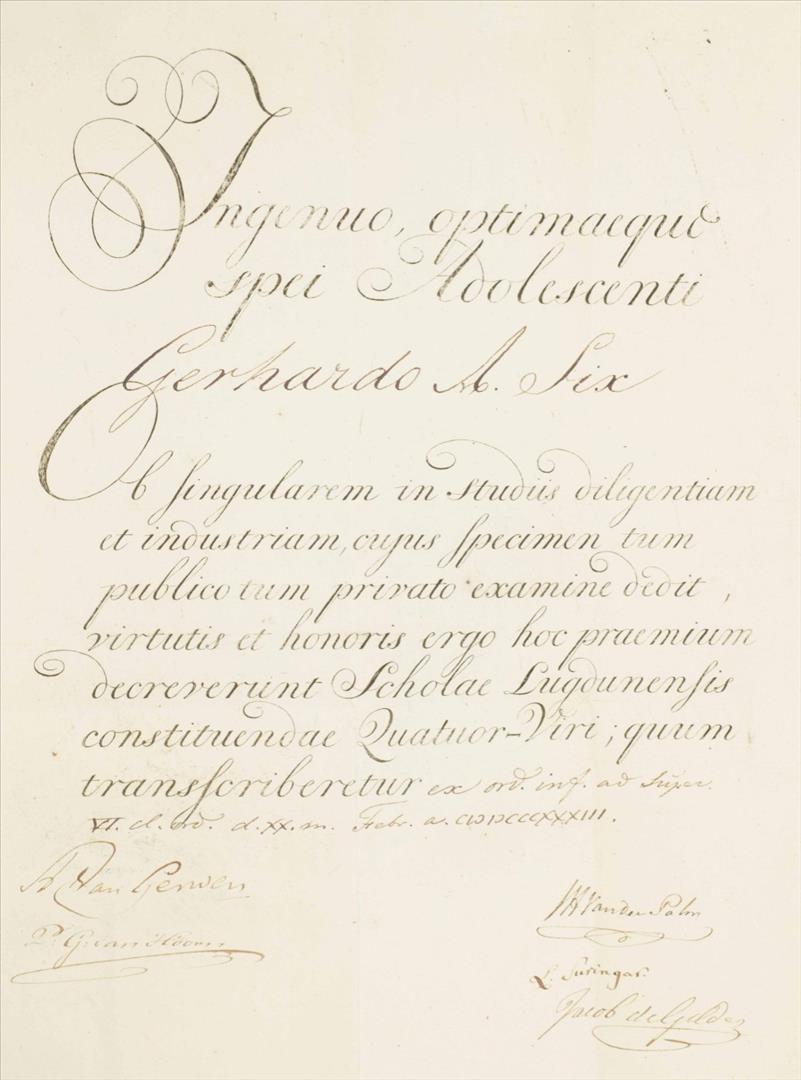 Ingenuo, optimaeque
spei Adolescenti
Gerhardo A. Six
Ob singularem in studiis diligentiam
et industriam, cujus specimen tum
publico tum privato examine dedit,
virtutis et honoris ergo hoc praemium
decreverunt Scholae Lugdunensis
constituendae Quatuor-Viri; quum
transscriberetur ex ord. inf. ad super.
VI. cl. ord. d. XX. m. Febr. a. CIↃIↃCCCXXXIII.
van Gerwen
JH van der Palm
P. G. van Hoorn
L. Suringar.
Jacob de Gelder